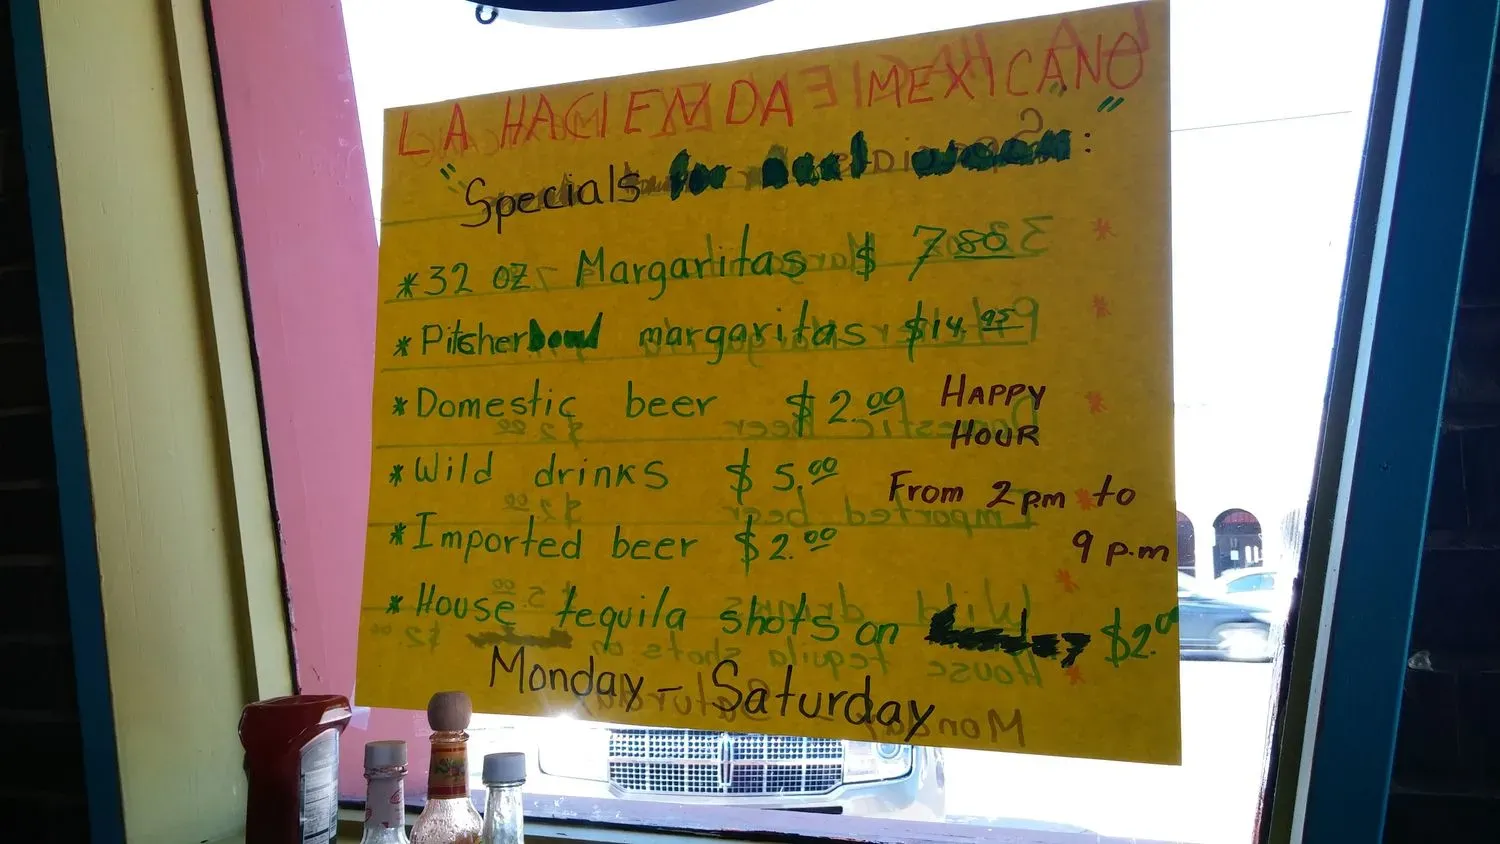 LA HACIENDA MEXICANO
"Specials ":
*32 oz Margaritas $ 7.80
*Pitsher margaritas $14.95
*Domestic beer $2.00
HAPPY
HOUR
*Wild drinks $5.00
From 2pm to
9 p.m
*Imported beer $2.00
*House tequila shots on $2.00
Monday - Saturday